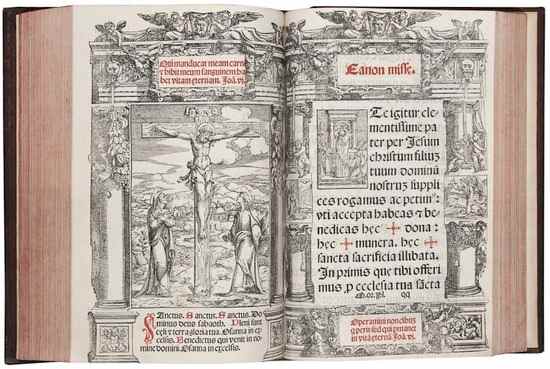 Qui manducat meam carnē
⁊ bibit meum sanguinem ha
bet vitam ęternam. Joā. vj.
Sanctus. Sanctus. Sanctus. Do
minus deus sabaoth. Pleni sunt
cęli ⁊ terra gloria tua. Osanna in ex
celsis. Benedictus qui venit in no
mine domini. Osanna in excelsis.
Canon misse.
Te igitur cle-
mentissime pa
ter per Jesum
christum filiuʒ
tuum dominū
nostruʒ suppli
ces rogamus ac petim⁹:
vti accepta habeas ⁊ be-
nedicas hęc ✠ dona:
hęc ✠ munera. hęc ✠
sancta sacrificia illibata.
In primis que tibi offeri
mus, p ecclesia tua sācta
Operamini non cibuʒ
q perit sed qui pmanet
in vitā ęternā Joā. vj.